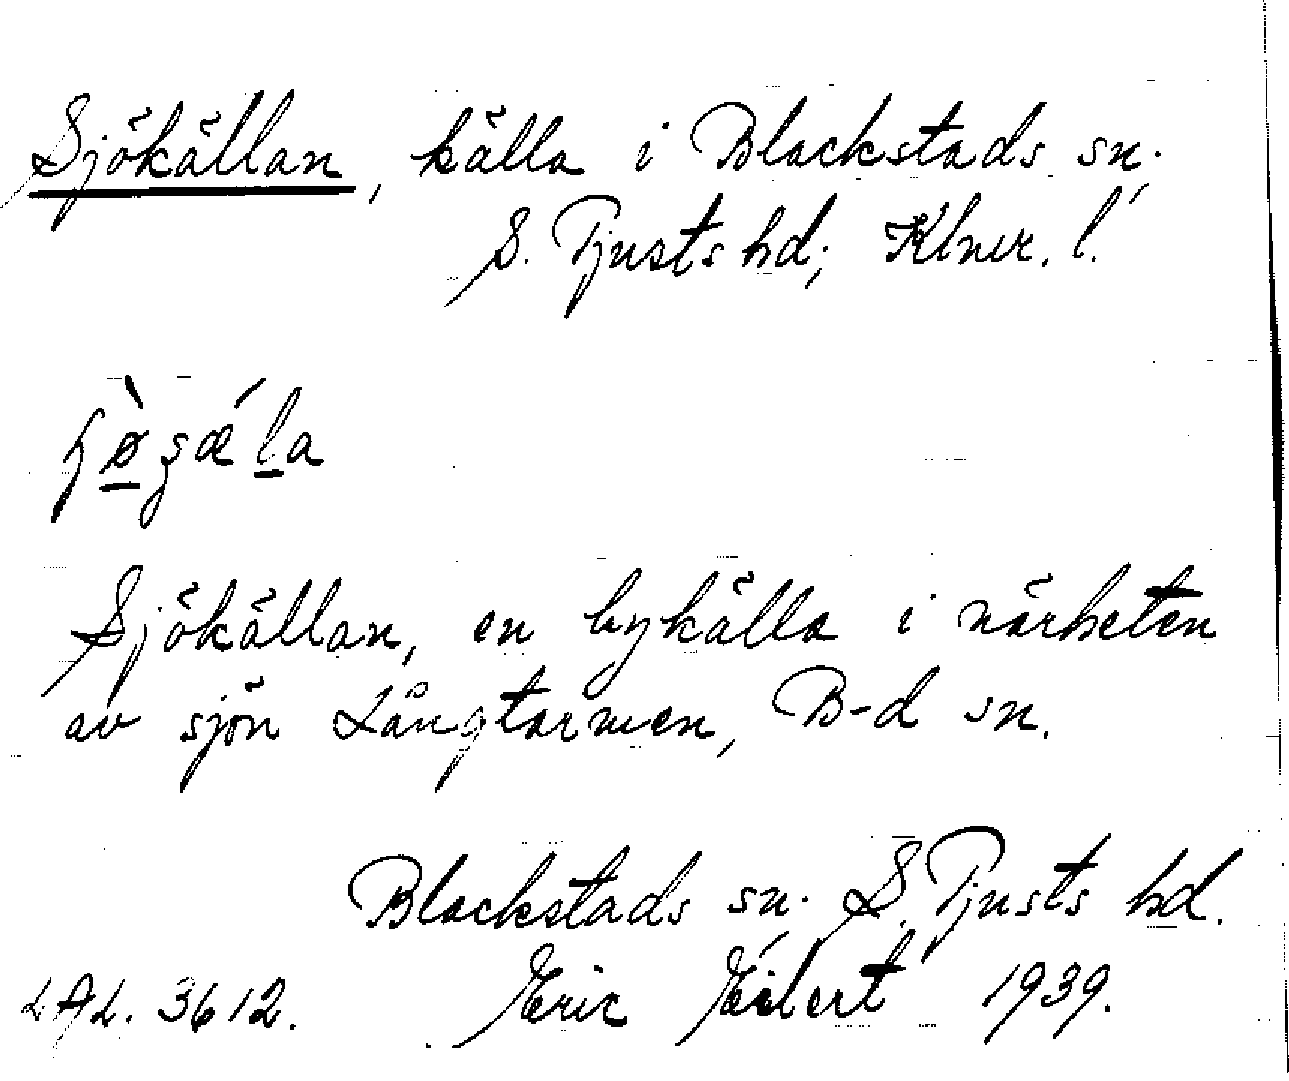 Sjökällan, källa i Blackstads sn.
S. Tjusts hd; Klmr. l.
Sjökällan, en bykälla i närheten
av sjön Långtarmen, B-d sn.
Blackstads sn. S. Tjusts hd.
LAL. 3612. Eric 1939.